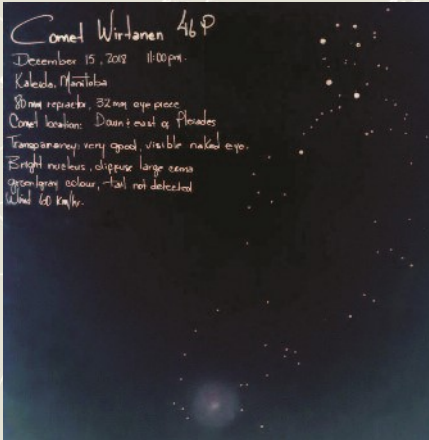 Comet Wirtanen 46P
December 15, 2018 11:00pm.
Kaleida, Manitoba
80mm refractor, 32mm eye piece
Comet location: Down & east of Pleiades
Transparency: very good, visible naked eye.
Bright nucleus, diffuse large coma
green/gray colour, tail not detected
Wind 60 km/hr.